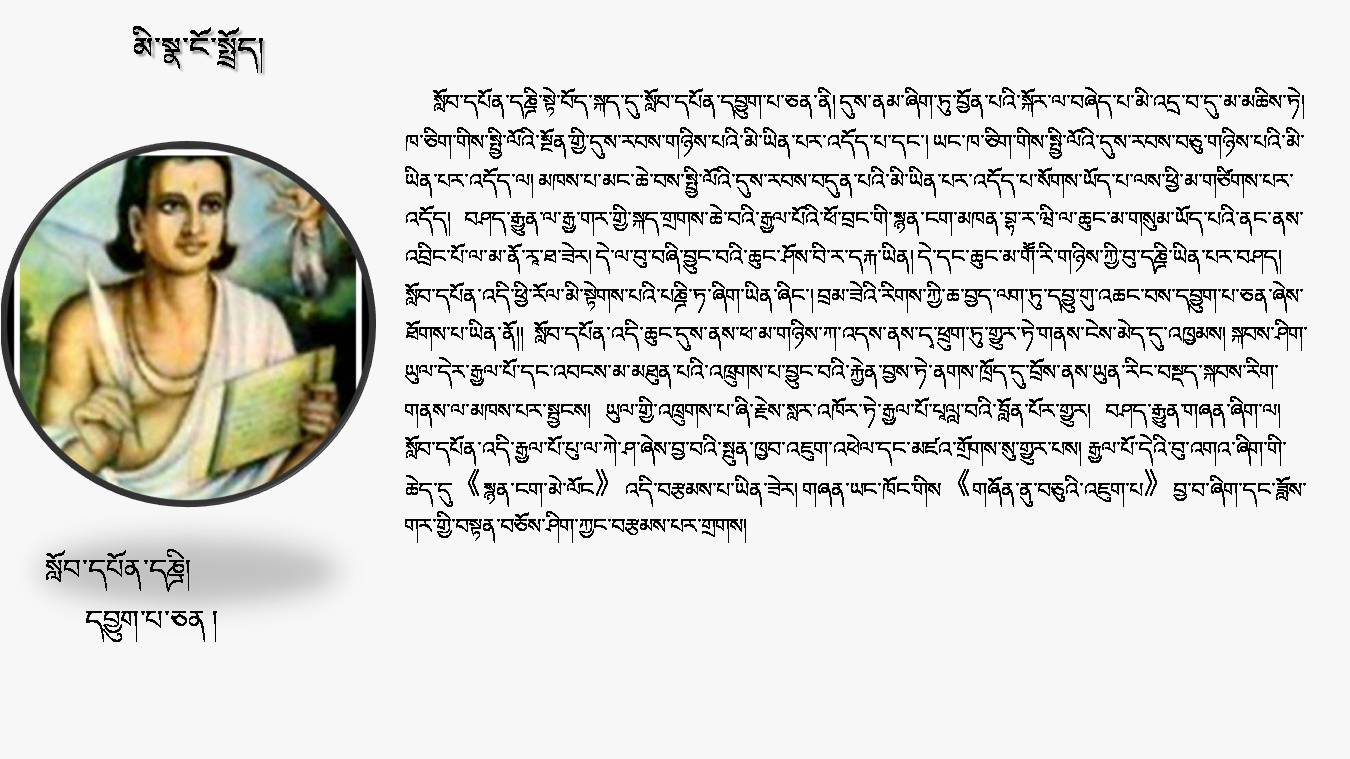 མི་སྣ་ངོ་སྤྲོད།
སློབ་དཔོན་དཎྜི་སྟེ་བོད་སྐད་དུ་སློབ་དཔོན་དབྱུག་པ་ཅན་ནི། དུས་ནམ་ཞིག་ཏུ་བྱོན་པའི་སྐོར་ལ་བཞེད་པ་མི་འདྲ་བ་དུ་མ་མཆིས་ཏེ།
ཁ་ཅིག་གིས་སྤྱི་ལོའི་སྔོན་གྱི་དུས་རབས་གཉིས་པའི་མི་ཡིན་པར་འདོད་པ་དང་། ཡང་ཁ་ཅིག་གིས་སྤྱི་ལོའི་དུས་རབས་བཅུ་གཉིས་པའི་མི་
ཡིན་པར་འདོད་ལ། མཁས་པ་མང་ཆེ་བས་སྤྱི་ལོའི་དུས་རབས་བདུན་པའི་མི་ཡིན་པར་འདོད་པ་སོགས་ཡོད་པ་ལས་ཕྱི་མ་གཙིགས་པར་
འདོད། བཤད་རྒྱུན་ལ་རྒྱ་གར་གྱི་སྐད་གྲགས་ཆེ་བའི་རྒྱལ་པོའི་ཕོ་བྲང་གི་སྙན་ངག་མཁན་བྷ་ར་ཝི་ལ་ཆུང་མ་གསུམ་ཡོད་པའི་ནང་ནས་
འབྲིང་པོ་ལ་མ་ནོ་རཱ་ཐ་ཟེར། དེ་ལ་བུ་བཞི་བྱུང་བའི་ཆུང་ཤོས་བི་ར་དཏྟ་ཡིན། དེ་དང་ཆུང་མ་གཽ་རི་གཉིས་ཀྱི་བུ་དཎྜི་ཡིན་པར་བཤད།
སློབ་དཔོན་འདི་ཕྱི་རོལ་མི་སྟེགས་པའི་པཎྜི་ཏ་ཞིག་ཡིན་ཞིང་། བྲམ་ཟེའི་རིགས་ཀྱི་ཆ་བྱད་ལག་ཏུ་དབྱུ་གུ་འཆང་བས་དབྱུག་པ་ཅན་ཞེས་
ཐོགས་པ་ཡིན་ནོ།། སློབ་དཔོན་འདི་ཆུང་དུས་ནས་ཕ་མ་གཉིས་ཀ་འདས་ནས་དྭ་ཕྲུག་ཏུ་གྱུར་ཏེ་གནས་ངེས་མེད་དུ་འཁྱམས། སྐབས་ཤིག་
ཡུལ་དེར་རྒྱལ་པོ་དང་འབངས་མ་མཐུན་པའི་འཁྲུགས་པ་བྱུང་བའི་རྐྱེན་བྱས་ཏེ་ནགས་ཁྲོད་དུ་བྲོས་ནས་ཡུན་རིང་བསྡད་སྐབས་རིག་
གནས་ལ་མཁས་པར་སྦྱངས། ཡུལ་གྱི་འཁྲུགས་པ་ཞི་རྗེས་སླར་འཁོར་ཏེ་རྒྱལ་པོ་པལླ་བའི་བློན་པོར་གྱུར། བཤད་རྒྱུན་གཞན་ཞིག་ལ།
སློབ་དཔོན་འདི་རྒྱལ་པོ་པུ་ལ་ཀེ་ཤ་ཞེས་བྱ་བའི་སྤུན་ཁྱབ་འཇུག་འཕེལ་དང་མཛའ་གྲོགས་སུ་གྱུར་པས། རྒྱལ་པོ་དེའི་བུ་འགའ་ཞིག་གི་
ཆེད་དུ 《སྙན་ངག་མེ་ལོང》 འདི་བརྩམས་པ་ཡིན་ཟེར། གཞན་ཡང་ཁོང་གིས 《གཞོན་ནུ་བཅུའི་འཇུག་པ》 བྱ་བ་ཞིག་དང་ཟློས་
གར་གྱི་བསྟན་བཅོས་ཤིག་ཀྱང་བརྩམས་པར་གྲགས།
སློབ་དཔོན་དཎྜི།
དབྱུག་པ་ཅན །